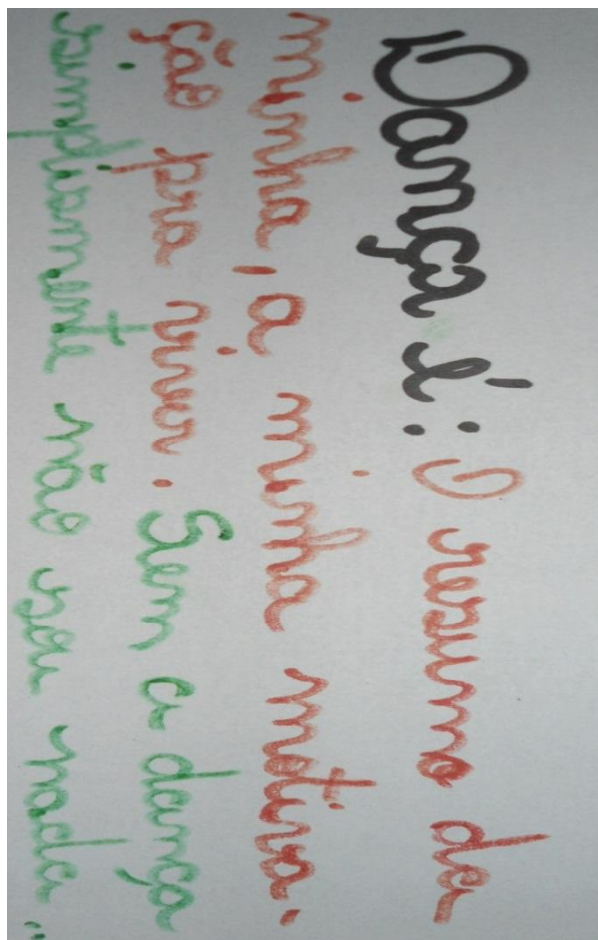 Dança é: O resumo da
minha, a minha motiva-
ção pra viver. Sem a dança
simplismente não sou nada..